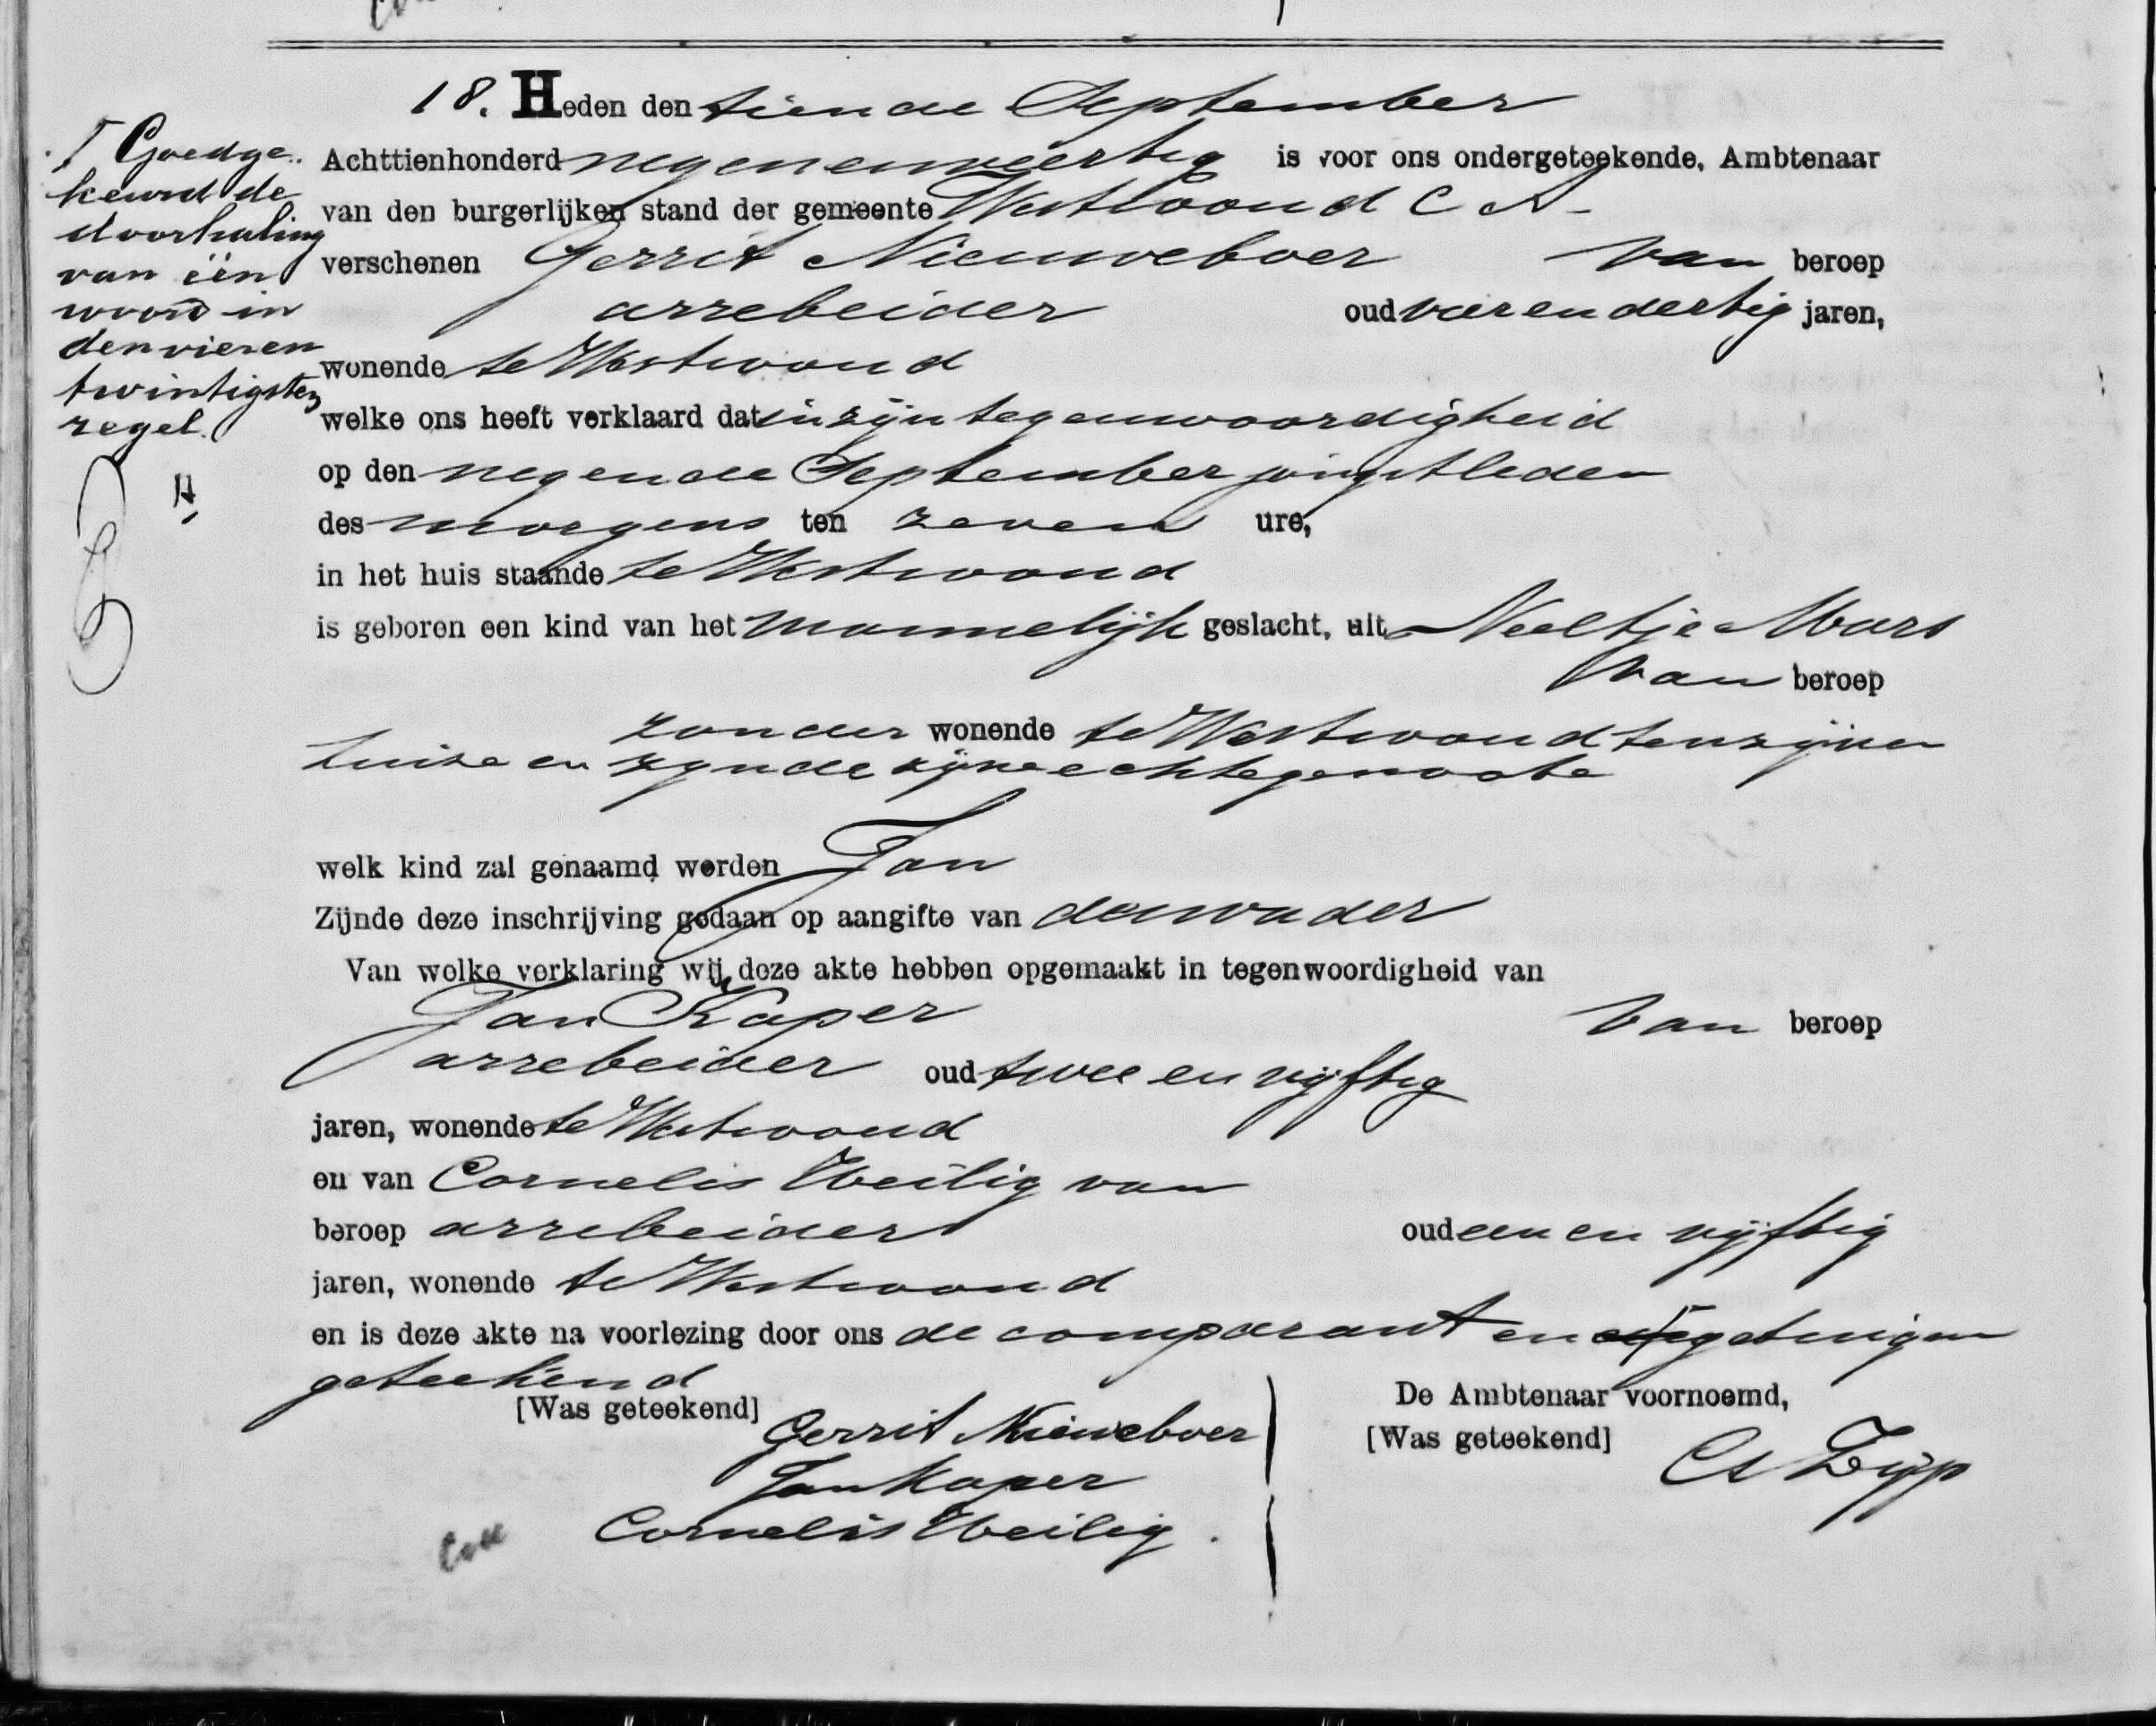 18. Heden den tiende September
Achttienhonderd negenenveertig is voor ons ondergeteekende, Ambtenaar
van den burgerlijken stand der gemeente Westwoud C A
verschenen Gerrit Nieuweboer van beroep
arrebeider oud vier en dertig jaren,
wonende te Westwoud
welke ons heeft verklaard dat in zijn tegenwoordigheid
op den negende September jongstleden
des morgens ten zeven ure,
in het huis staande te Westwoud
is geboren een kind van het mannelijk geslacht, uit Neeltje Mars
van beroep
zonder wonende te Westwoud tenzijnen
huize en zynde zijne echtegenoote
welk kind zal genaamd worden Jan
Zijnde deze inschrijving gedaan op aangifte van den vader
Van welke verklaring wij deze akte hebben opgemaakt in tegenwoordigheid van
Jan Kaper van beroep
arrebeider oud twee en vijftig
jaren, wonende te Westwoud
en van Cornelis Veilig van
beroep arrebeider oud een en vijftig
jaren, wonende te Westwoud
en is deze akte na voorlezing door ons de comparant en getuigen
geteekend
[Was geteekend]
Gerrit Nieuweboer
Jan Kaper
Cornelis Veilig.
De Ambtenaar voornoemd,
[Was geteekend]
Zijp
Goedge-
keurd de
doorhaling
van één
woord in
den vieren
twintigsten
regel.